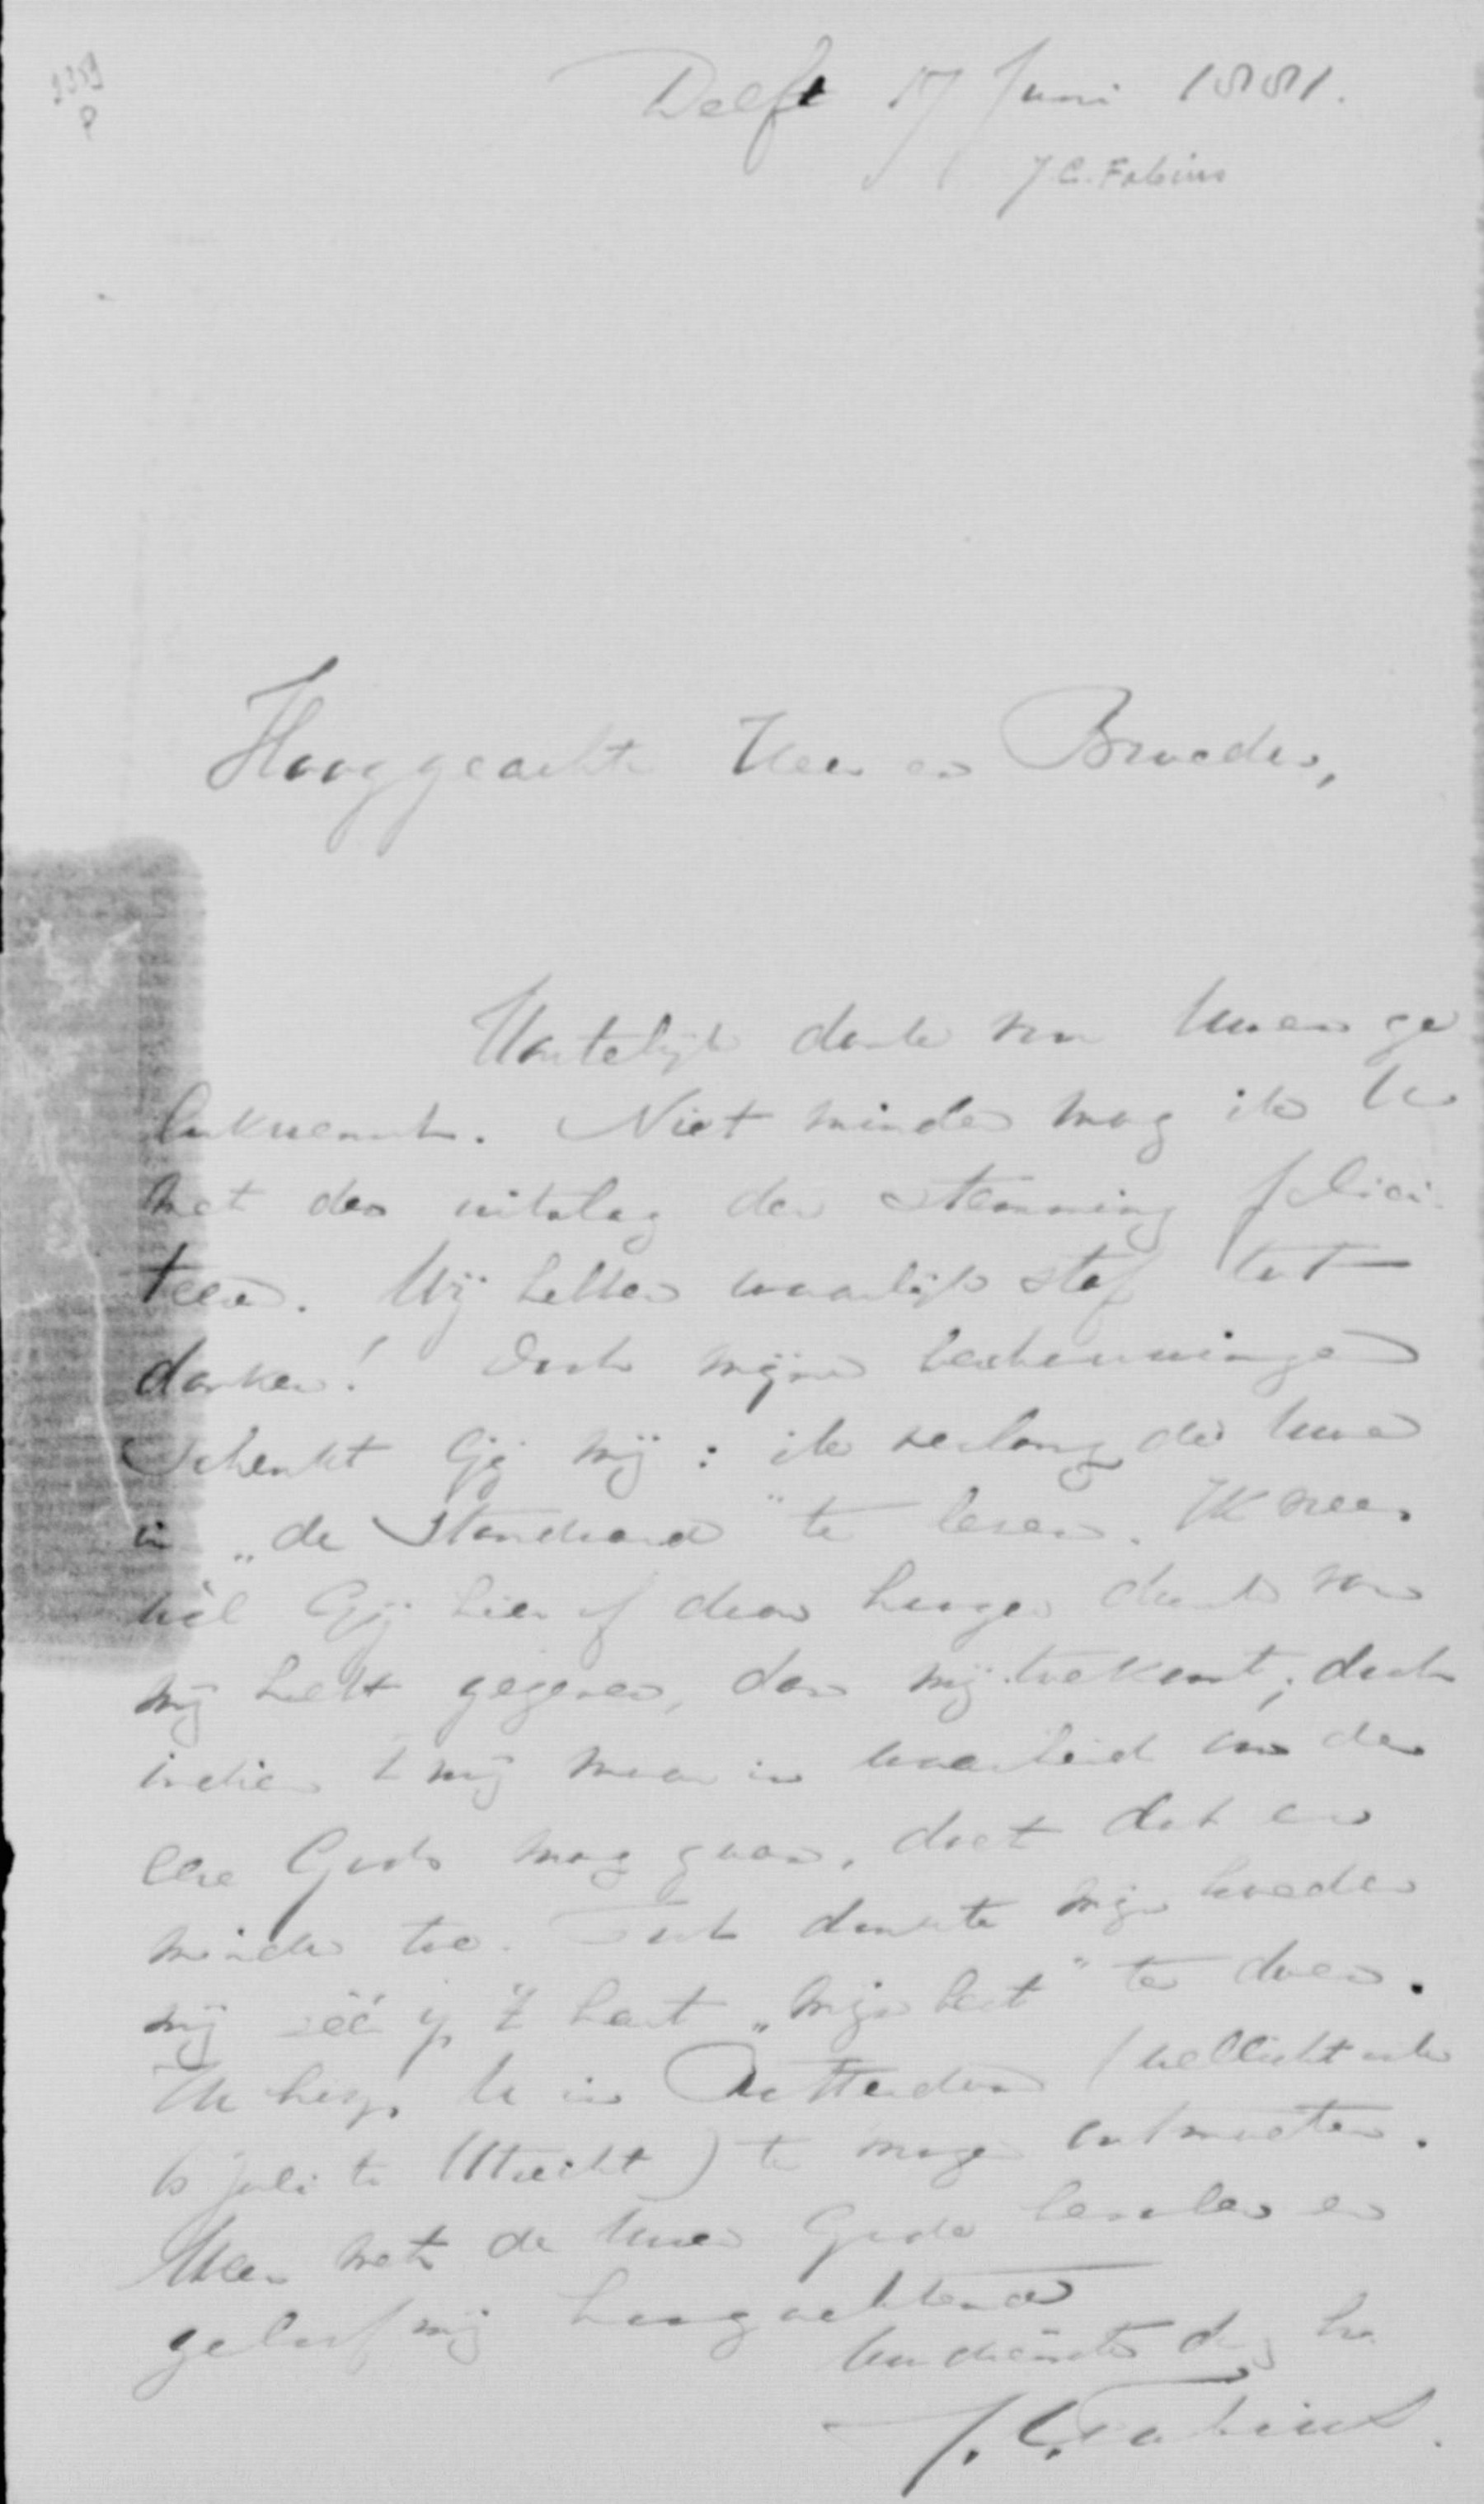 2359
P
Delft 17 Juni 1881.
J C. Fabius
Hooggeachte Heer en Broeder,
Hartelijk dank van Uwen ge
lukwensch. Niet minder mag ik U
met den uitslag der stemming felici-
teeren. Wij hebben waarlijk stof tot
danken! Ook mijne beschouwingen
schenkt Gij mij: ik verlang de Uwe
in „de Standaard" te lezen. Ik vree,
dat Gij hier of daar hooger dunk van
mij hebt gegeven, dan mij toekomt; doch
indien 't mij maar in waarheid om de
eere Gods mag gaan, doet dat er
minder toe. Ook dankte mijn broeder
mij zéé op 't hart „mijn best" te doen.
Ik hoop U in Rotterdam (wellicht ook
6 juli te Utrecht) te mogen ontmoeten.
Weer met de Uwen Gode bevolen en
geloof mij hoogachtend
Uw dienstw. br.
J. C. Fabius.